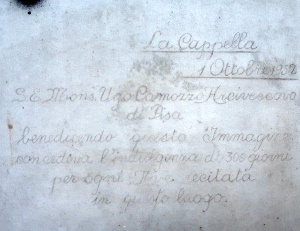 La Cappella
1 Ottobre 1952
S.E. Mons. Ugo Camozzo Arcivescovo
di Pisa
benedicendo questa Immagine
concedeva l'indulgenza di 300 giorni
per ogni Ave recitata
in questo luogo.